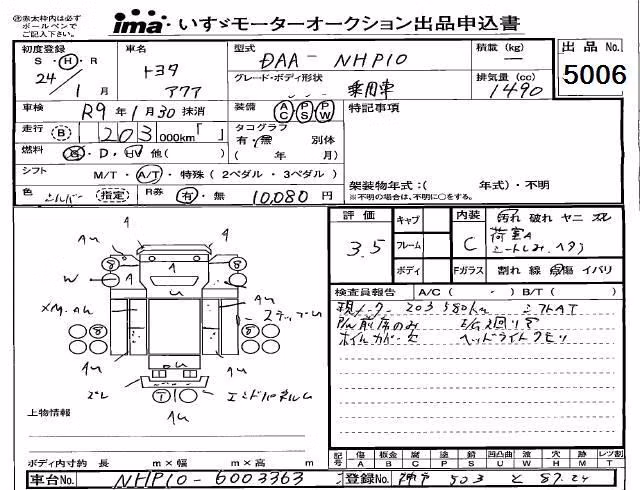 ※太枠内は必ず
ボールペンで
ご記入下さい。
ima いすゞモーターオークション出品申込書
初度登録 S・H・R 24/1月
車名 トヨタ アクア
型式 DAA- NHP10
グレード・ボディ形状 乗用車
積載 (kg) —
排気量 (cc) 1490
出品 No. 5006
車検 R9年1月30 抹消
装備 AC PS PW
特記事項
走行 (B) 203 000km「 」
タコグラフ 有・無 別体
( 年 月)
燃料 G・D・HV 他( )
シフト M/T・A/T・特殊(2ペダル・3ペダル)
架装物年式:( 年式)・不明
※不明の場合は、不明に○をする。
色 シルバー (指定) R券 有・無 10,080円
評価 3.5
キャブ
フレーム
ボディ
内装 C
汚れ 破れ ヤニ
荷室A
Fガラス 割れ 線 点傷 イバリ
検査員報告 A/C( - ) B/T( )
現メーター 203580km シフトAT
P/W前席のみ
ヘッドライトクモリ
A
A
AU
A
W
A
U
XM.AU
AU
ステップU
AU
AU
U
エンドパネルU
AU
上物情報
ボディ内寸約 長 m×幅 m×高 m
記号 傷A 板金B 腐C 塗P 錆S 凹凸曲U 波W 穴H 跡M レツ割T
車台No. NHP10-6003363
登録No. 神戸 503 と 87-24